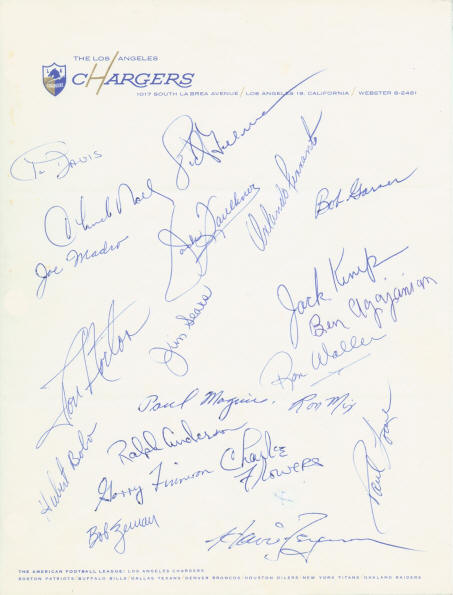 THE LOS ANGELES
CHARGERS
CHARGERS
1017 SOUTH LA BREA AVENUE / LOS ANGELES 19, CALIFORNIA / WEBSTER 8-2461
Sid Gillman
Al Davis
Chuck Noll
Joe Madro
Jack Faulkner
Orlando Ferrante
Bob Garner
Jack Kemp
Ben Agajanian
Ron Waller
Jim Sears
Don Norton
Paul Maguire
Ron Mix
Ralph Anderson
Hubert Bobo
Garry Finneran
Charlie
Flowers
Paul Lowe
Bob Zeman
Howie Ferguson
THE AMERICAN FOOTBALL LEAGUE: LOS ANGELES CHARGERS
BOSTON PATRIOTS / BUFFALO BILLS / DALLAS TEXANS / DENVER BRONCOS / HOUSTON OILERS / NEW YORK TITANS / OAKLAND RAIDERS